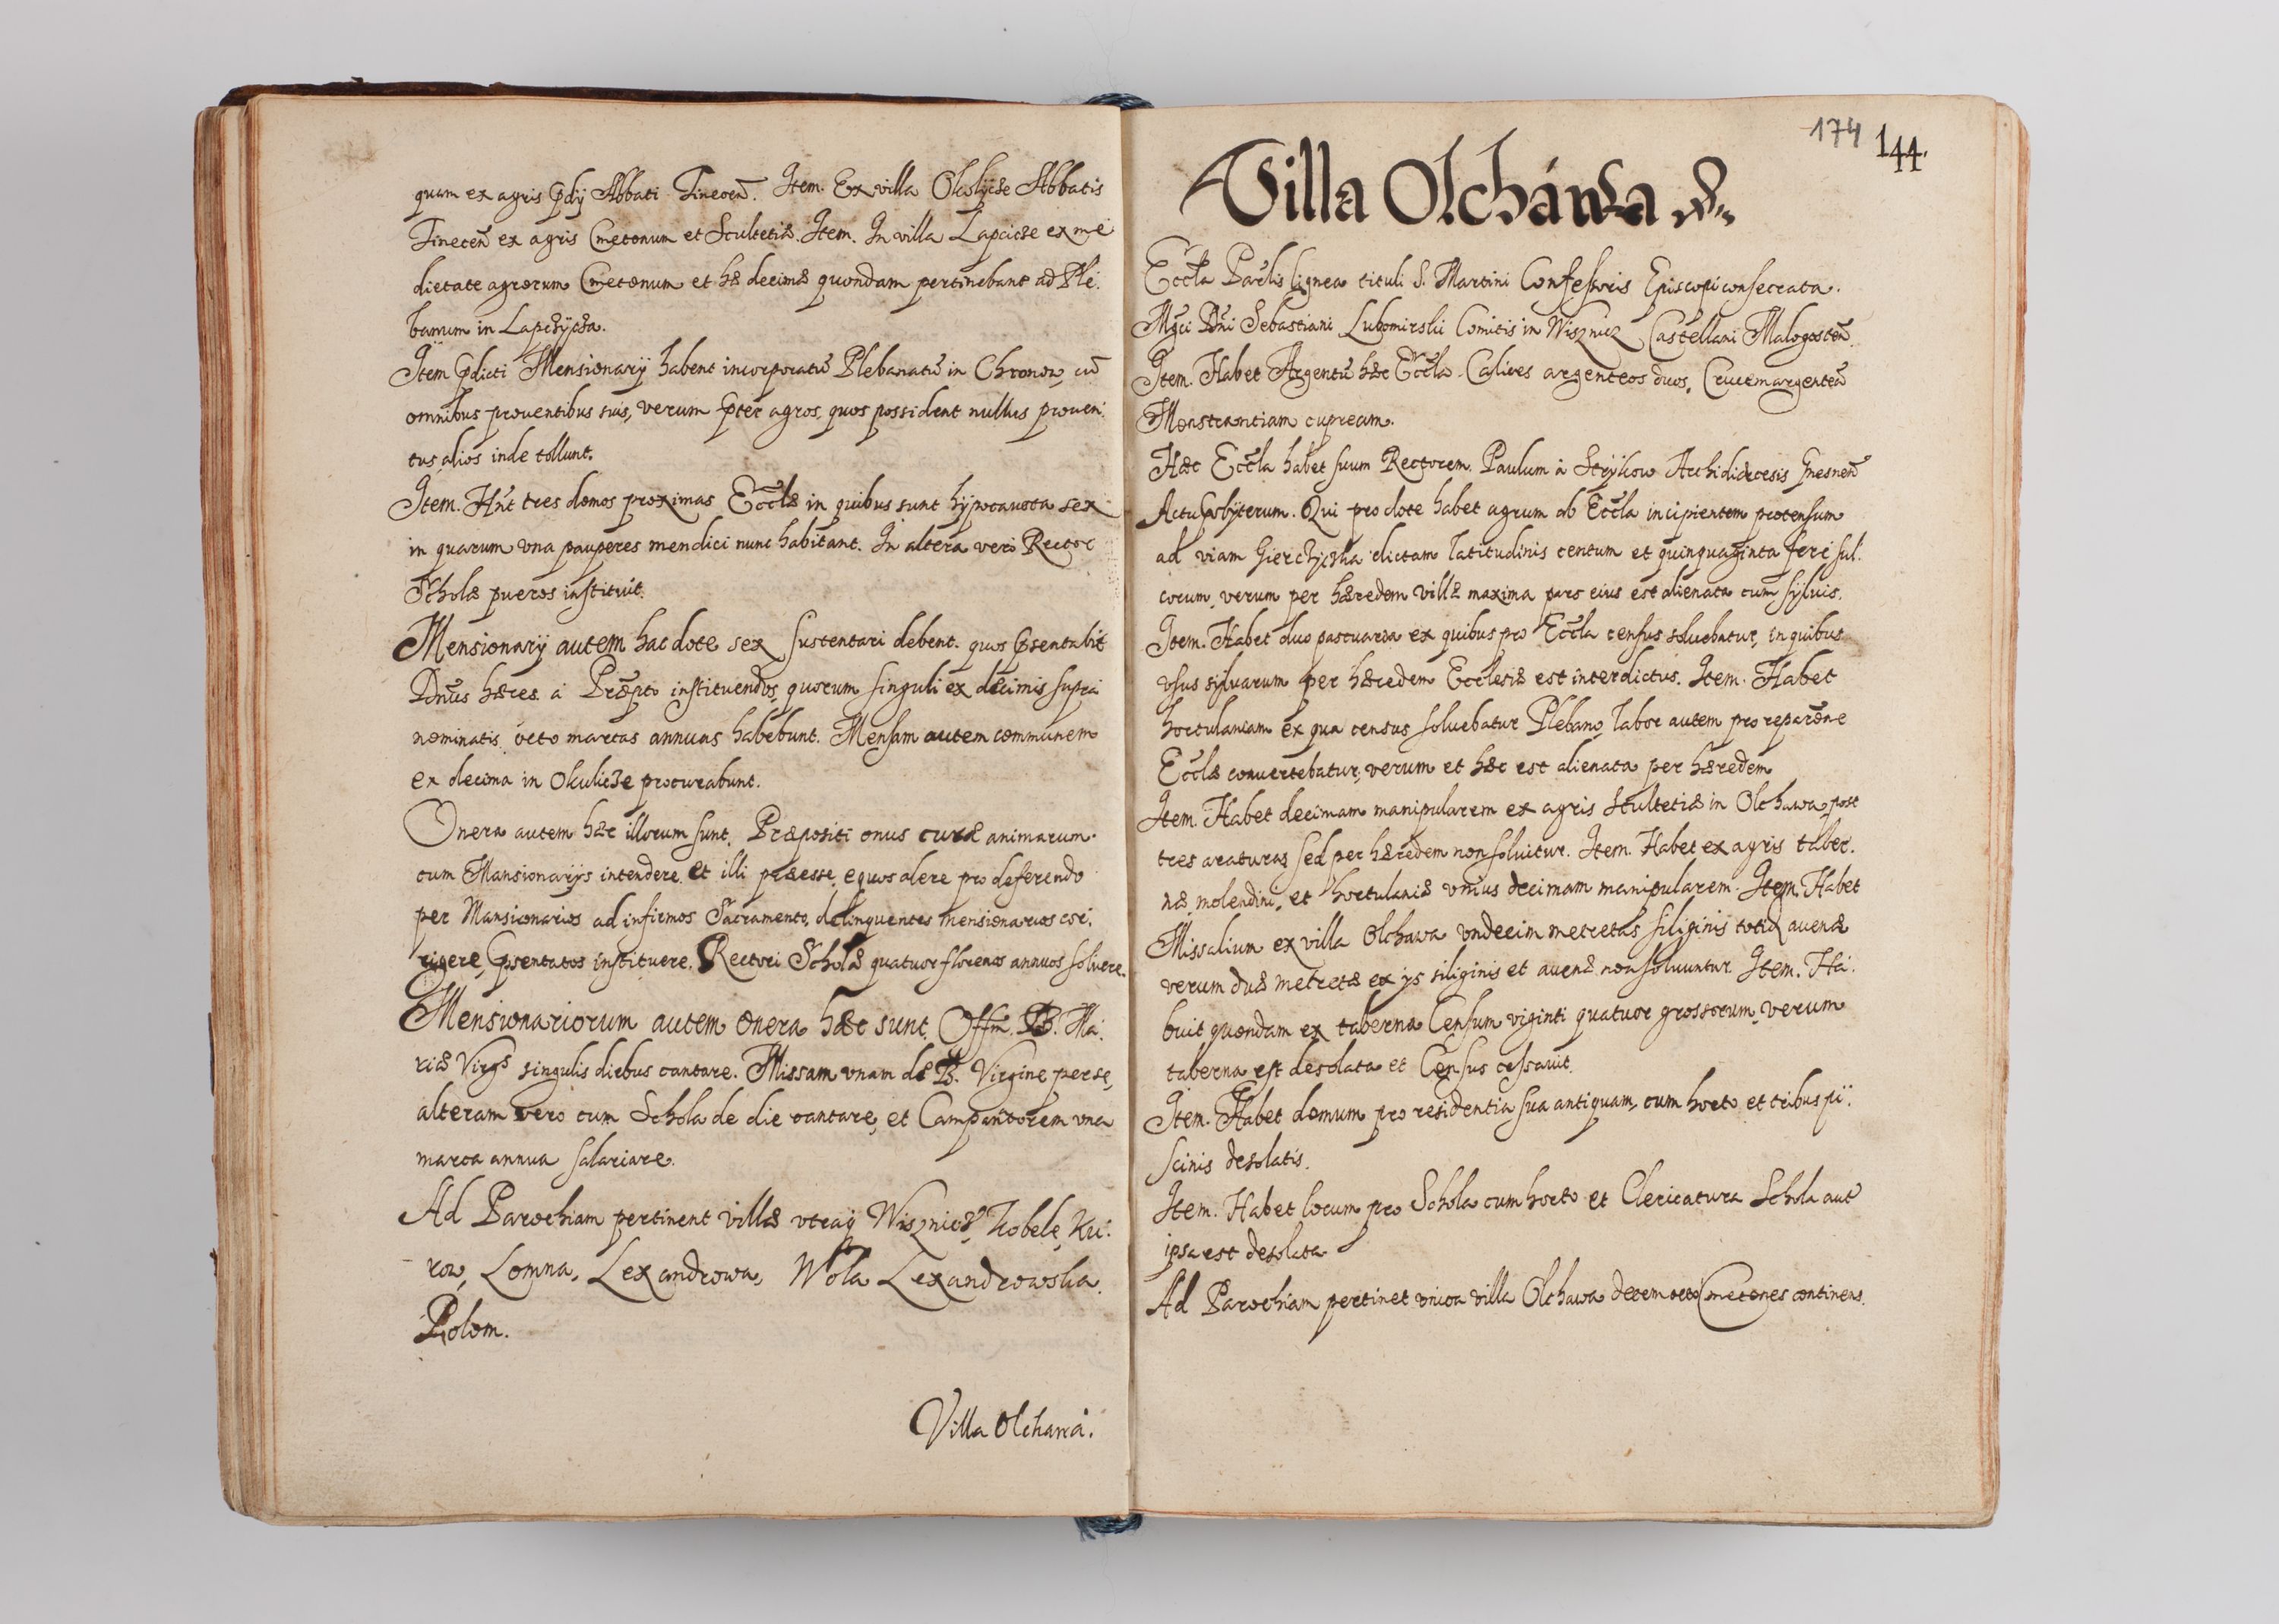 quam ex agris p̄dij Abbati Tinecen̄. Item. Ex villa Okolycze Abbatis
Tinecen̄ ex agris Cmetonum et Scultetiæ. Item. In villa Lapczicze ex me
dietate agrorum Cmetonum et hæ decimæ quondam pertinebant ad Ple:
banum in Lapczycza.
Item p̄dicti Mensionarij habent incorporatū Plebanatū in Chronow, cū
omnibus prouentibus suis, verum p̄ter agros, quos possident nullus prouen:
tus alios inde tollunt.
Item. Hn̄t tres domos proximas Eccl̄æ in quibus sunt hypocausta sex
in quarum vna pauperes mendici nunc habitant. In altera vero Rector
Scholæ pueros instituit.
Mensionarij autem hac dote sex sustentari debent. quos p̄sentabit
Dn̄us hæres à Præpto instituendos, quorum singuli ex decimis supra
nominatis octo marcas annuas habebunt. Mensam autem communem
ex decima in Okulicze procurabunt.
Onera autem hæc illorum sunt. Præpositi onus curæ animarum
cum Mansionarijs intendere et illi præesse, equos alere pro deferendo
per Mansionarios ad infirmos Sacramento, delinquentes mensionarios cor:
rigere, p̄sentatos instituere. Rectori Scholæ quatuor florenos annuos soluere.
Mensionariorum autem onera hæc sunt. Offm̄. B. Ma:
riæ Virgs singulis diebus cantare. Missam vnam de B. Virgine per se,
alteram vero cum Schola de die cantare, et Campanatorem vna
marca annua salariare.
Ad Parochiam pertinent villæ vtraq Wisznicz, Kobele, Ku:
row, Lomna, Lexandrowa, Wola Lexandrowska.
Polom.
Villa Olchawa.
174 144.
Villa Olcháwa
Eccl̄a Par̄lis lignea tituli S. Martini Confessoris Episcopi consecrata.
Mgc̄i Dn̄i Sebastiani Lubomirski Comitis in Wisznicz Castellani Malogosten̄.
Item. Habet Argentū hæc Eccl̄a Calices argenteos duos, Crucem argenteā
Monstrantiam cupream.
Hæc Eccl̄a habet suum Rectorem Paulum à Strÿkow Archidiœcesis Gnesnen̄
Actu p̄sbyterum. Qui pro dote habet agrum ab Eccl̄a incipientem protensum
ad viam Gierczyczka dictam latitudinis centum et quinquaginta ferè sul:
corum, verum per hæredem villæ maxima pars eius est alienata cum syluis.
Item. Habet duo pascuaria ex quibus pro Eccl̄a census soluebatur, in quibus
vsus syluarum per hæredem Ecclesiæ est interdictus. Item. Habet
hortulaniam ex qua census soluebatur Plebano, labor autem pro reparōne
Eccl̄æ conuertebatur, verum et hæc est alienata per hæredem
Item. Habet decimam manipularem ex agris Scultetiæ in Olchawa post
tres araturas sed per hæredem non soluitur. Item. Habet ex agris taber.
næ, molendini, et hortulaniæ vnius decimam manipularem. Item. Habet
Missalium ex villa Olchawa vndecim metretas siliginis totiq auenæ
verum duæ metretæ ex ijs siliginis et auenæ non soluuntur. Item. Ha:
buit quondam ex taberna Censum viginti quatuor grossorum, verum
taberna est desolata et Census cessauit.
Item. Habet domum pro residentia sua antiquam, cum horto et tribus pi:
scinis desolatis.
Item. Habet locum pro Schola cum horto et Clericatura Schola aut̄
ipsa est desolata
Ad Parochiam pertinet vnica villa Olchawa decem octo Cmetones continens.